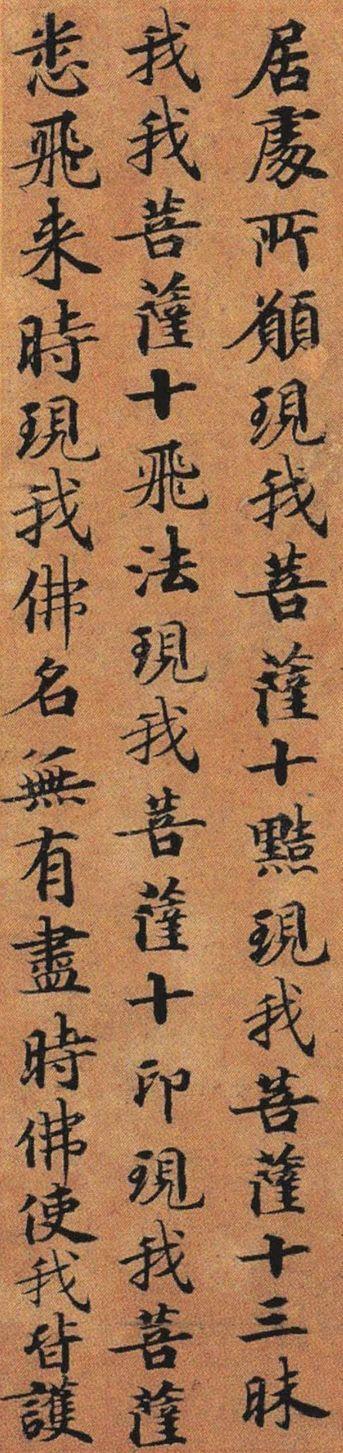 居處所願現我菩薩十黠現我菩薩十三昧
我我菩薩十飛法現我菩薩十印現我菩薩
悉飛来時現我佛名無有盡時佛使我皆護